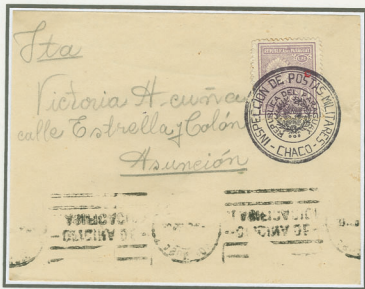 Sta
Victoria Acuña
calle Estrella y Colón
Asunción
INSPECCION DE POSTAS MILITARES
- CHACO -
REPUBLICA DEL PARAGUAY
OFICINA DE